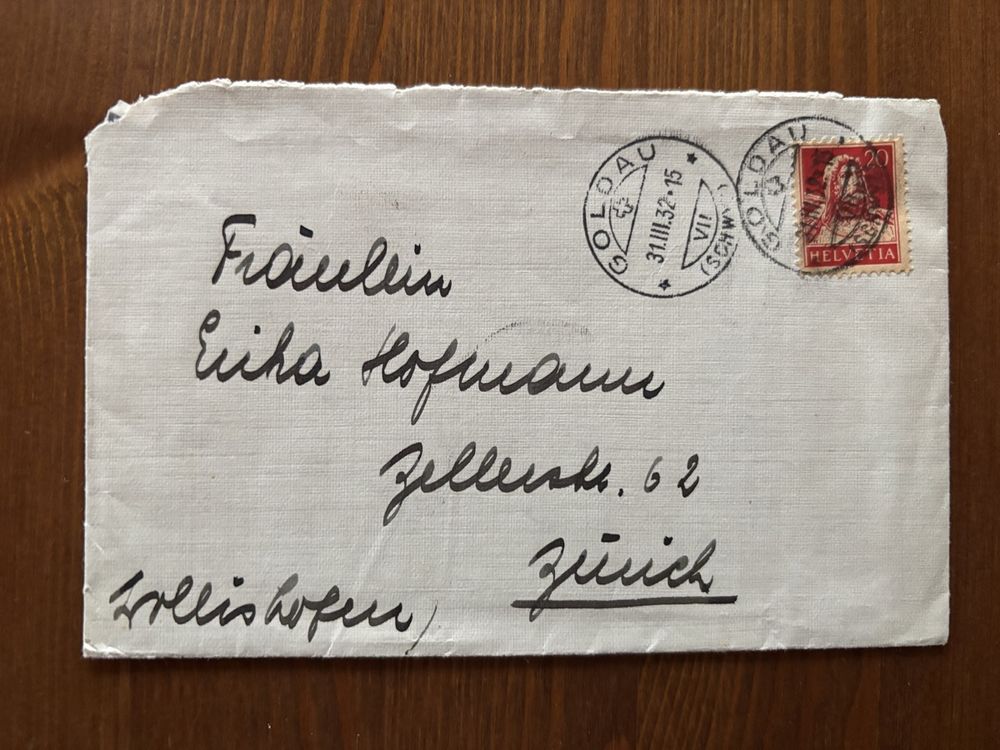 GOLDAU
31.III.32-15
VII
(SCHWYZ)
GOLDAU
20
HELVETIA
Fräulein
Erika Hofmann
Zellerstr. 62
Zürich
Wollishofen)